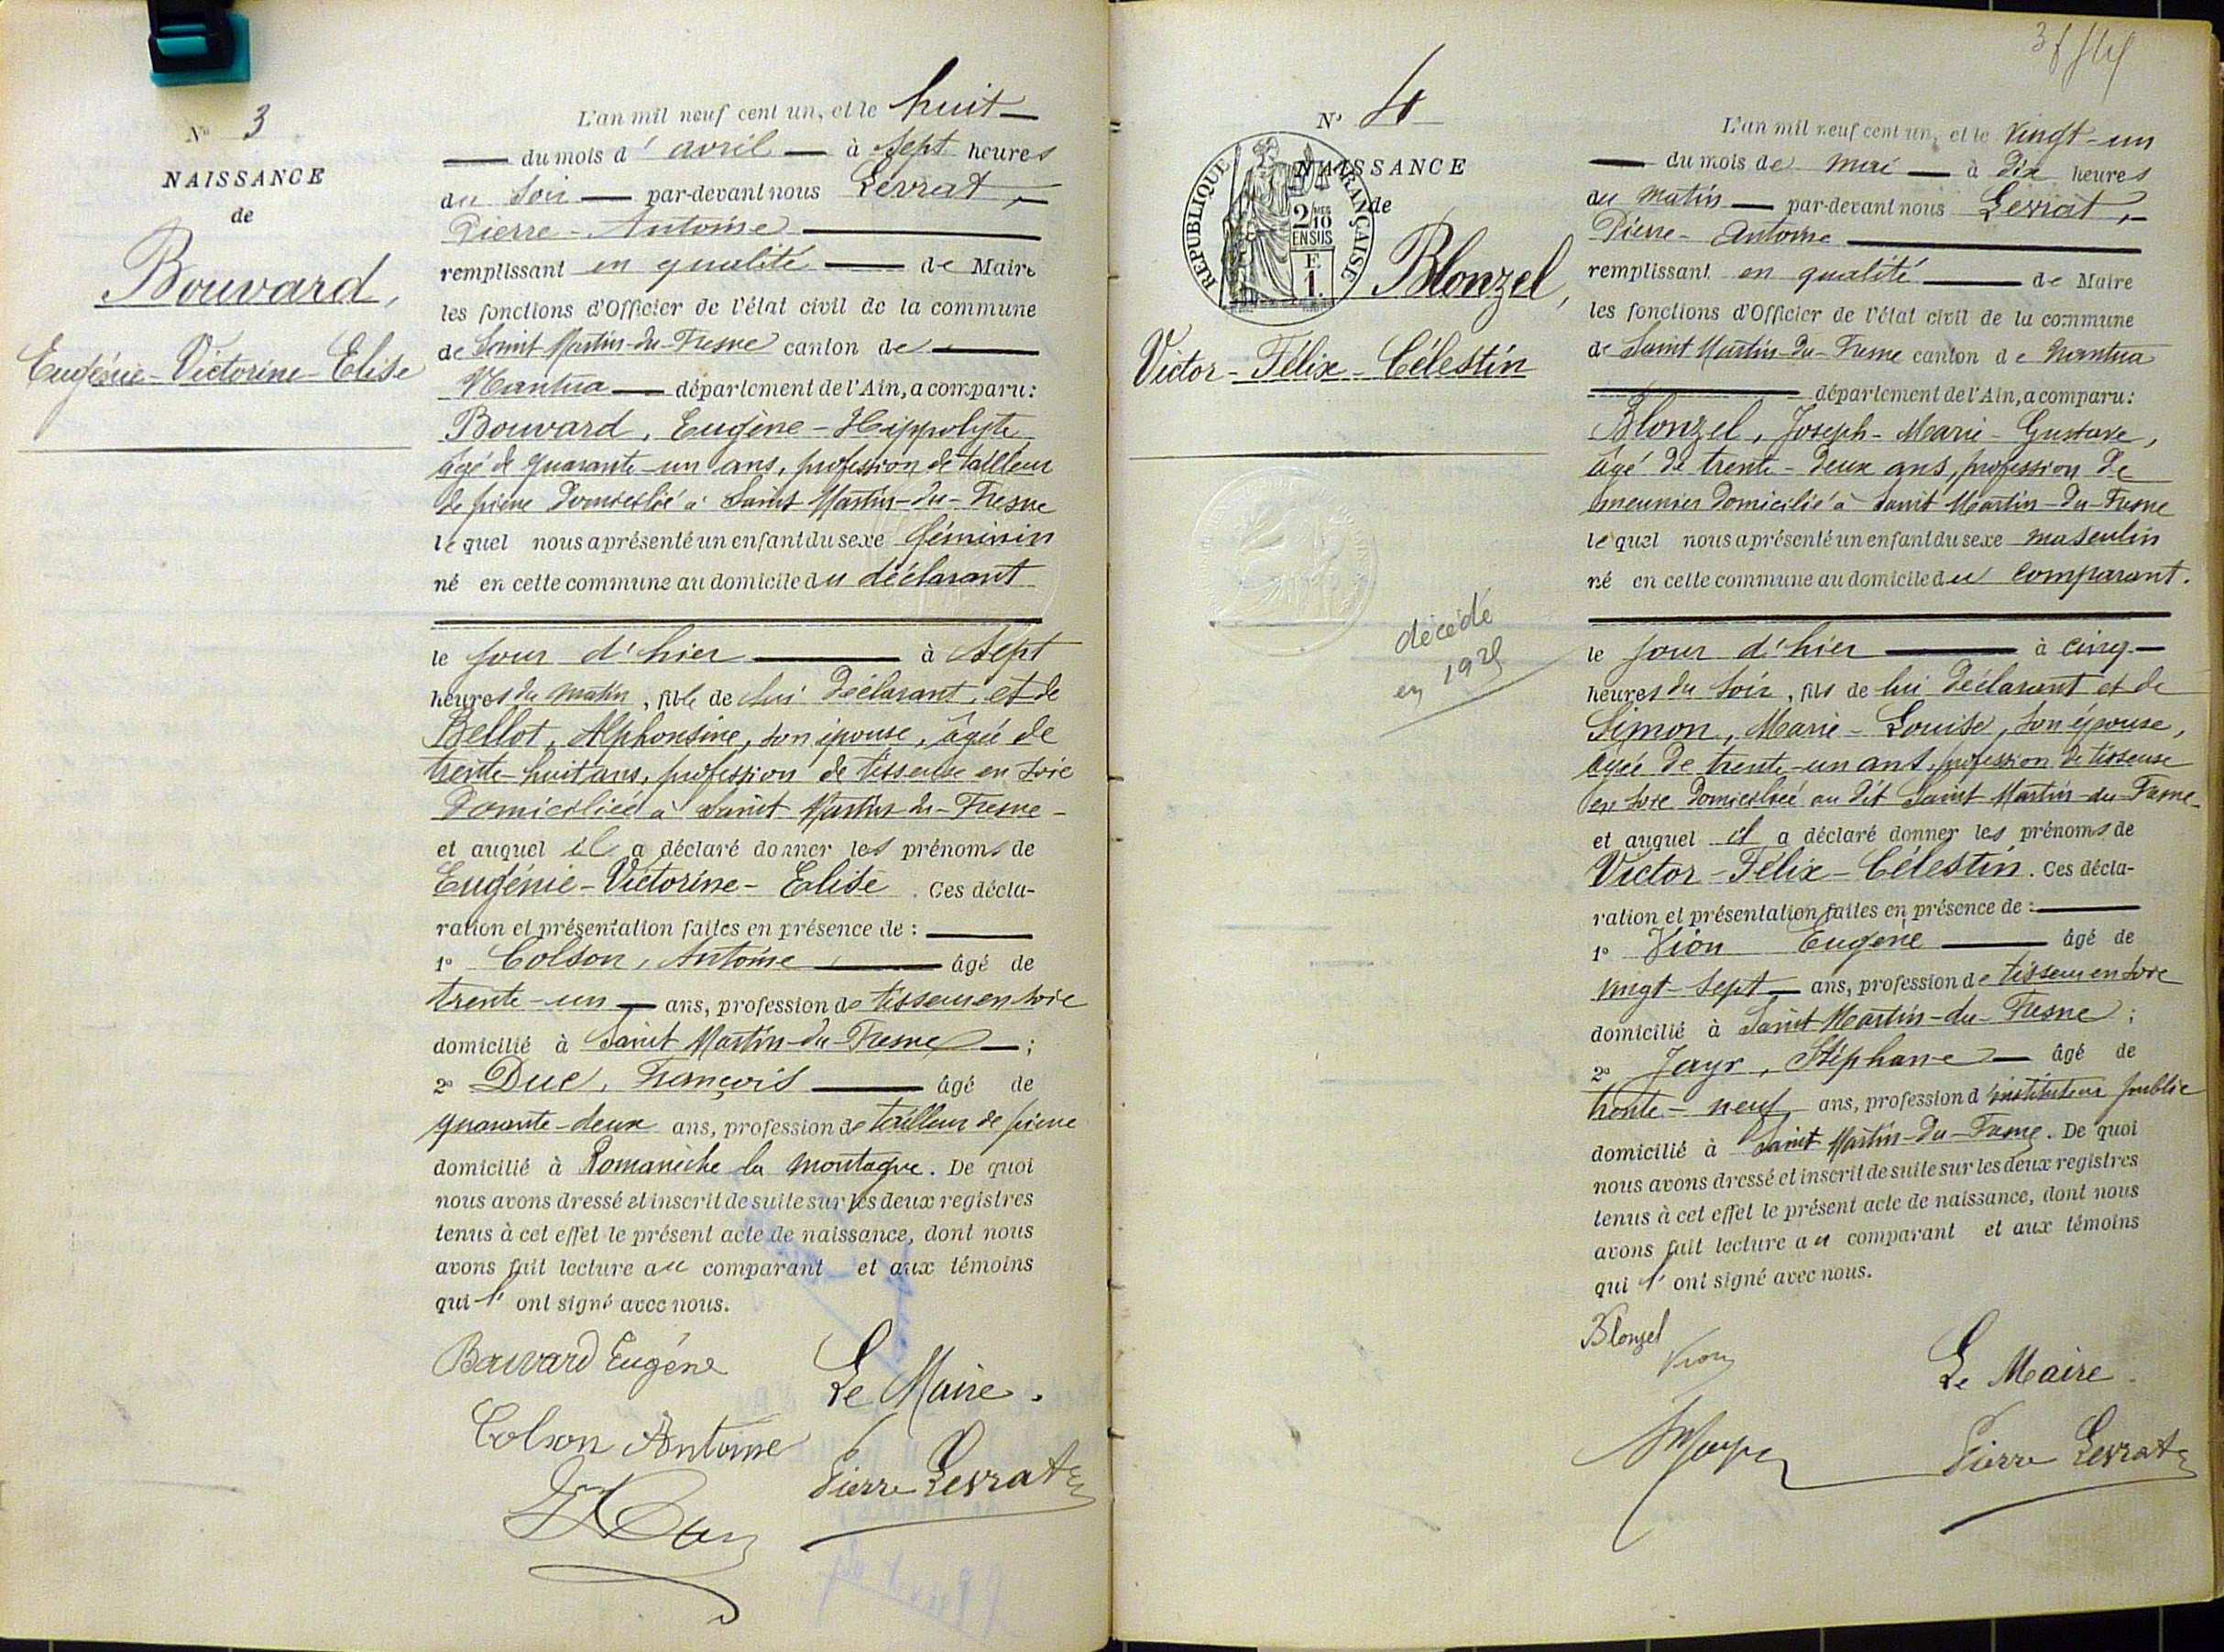 N° 3
NAISSANCE
de
Bouvard,
Eugénie-Victorine-Elise
L'an mil neuf cent un, et le huit
du mois d'avril à sept heures
du soir par-devant nous Levrat,
Pierre-Antoine
remplissant en qualité de Maire
les fonctions d'Officier de l'état civil de la commune
de Saint Martin-du-Fresne canton de
Nantua département de l'Ain, a comparu:
Bouvard, Eugène-Hippolyte,
âgé de quarante-un ans, profession de tailleur
de pierre domicilié à Saint Martin-du-Fresne
lequel nous a présenté un enfant du sexe féminin
né en cette commune au domicile du déclarant
le jour d'hier à sept
heures du matin, fille de lui déclarant et de
Bellot, Alphonsine, son épouse, âgée de
trente-huit ans, profession de tisseuse en soie
domiciliée à Saint Martin-du-Fresne-
et auquel il a déclaré donner les prénoms de
Eugénie-Victorine-Elise. Ces décla-
ration et présentation faites en présence de :
1° Colson, Antoine âgé de
trente-un ans, profession de tisseur en soie
domicilié à Saint Martin-du-Fresne ;
2° Duc, François âgé de
quarante-deux ans, profession de tailleur de pierre
domicilié à Romanèche la montagne. De quoi
nous avons dressé et inscrit de suite sur les deux registres
tenus à cet effet le présent acte de naissance, dont nous
avons fait lecture au comparant et aux témoins
qui l'ont signé avec nous.
Bouvard Eugène
Le Maire.
Colson Antoine
Pierre Levrat
N° 4
NAISSANCE
de
RÉPUBLIQUE FRANÇAISE
2/10
EN SUS
1
Blonzel,
Victor-Félix-Célestin
décédé
en 1925
L'an mil neuf cent un, et le vingt-un
du mois de mai à dix heures
du matin par-devant nous Levrat,
Pierre-Antoine
remplissant en qualité de Maire
les fonctions d'Officier de l'état civil de la commune
de Saint Martin-du-Fresne canton de Nantua
département de l'Ain, a comparu:
Blonzel, Joseph-Marie-Gustave,
âgé de trente-deux ans, profession de
meunier domicilié à Saint Martin-du-Fresne
lequel nous a présenté un enfant du sexe masculin
né en cette commune au domicile du comparant.
le jour d'hier à cinq
heures du soir, fils de lui déclarant et de
Simon, Marie-Louise, son épouse,
âgée de trente-un ans, profession de tisseuse
en soie domiciliée au dit Saint-Martin-du-Fresne-
et auquel il a déclaré donner les prénoms de
Victor-Félix-Célestin. Ces décla-
ration et présentation faites en présence de :
1° Vion Eugène âgé de
vingt-sept ans, profession de tisseur en soie
domicilié à Saint Martin-du-Fresne ;
2° Jayr, Stéphane âgé de
trente-neuf ans, profession d'instituteur public
domicilié à Saint Martin-du-Fresne. De quoi
nous avons dressé et inscrit de suite sur les deux registres
tenus à cet effet le présent acte de naissance, dont nous
avons fait lecture au comparant et aux témoins
qui l'ont signé avec nous.
Blonzel
Vion
Le Maire
Pierre Levrat